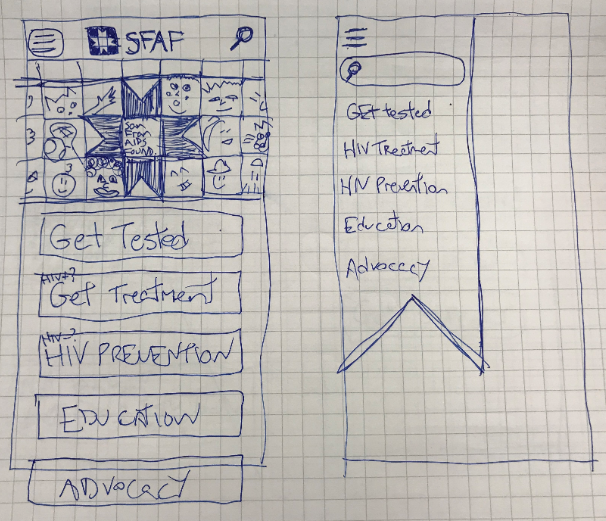 SFAF
SAN
FRAN
AIDS
FOUND.
Get Tested
HIV+?
Get Treatment
HIV-?
HIV PREVENTION
EDUCATION
ADVOCACY
GEt tested
HIV Treatment
HIV Prevention
Education
Advocacy